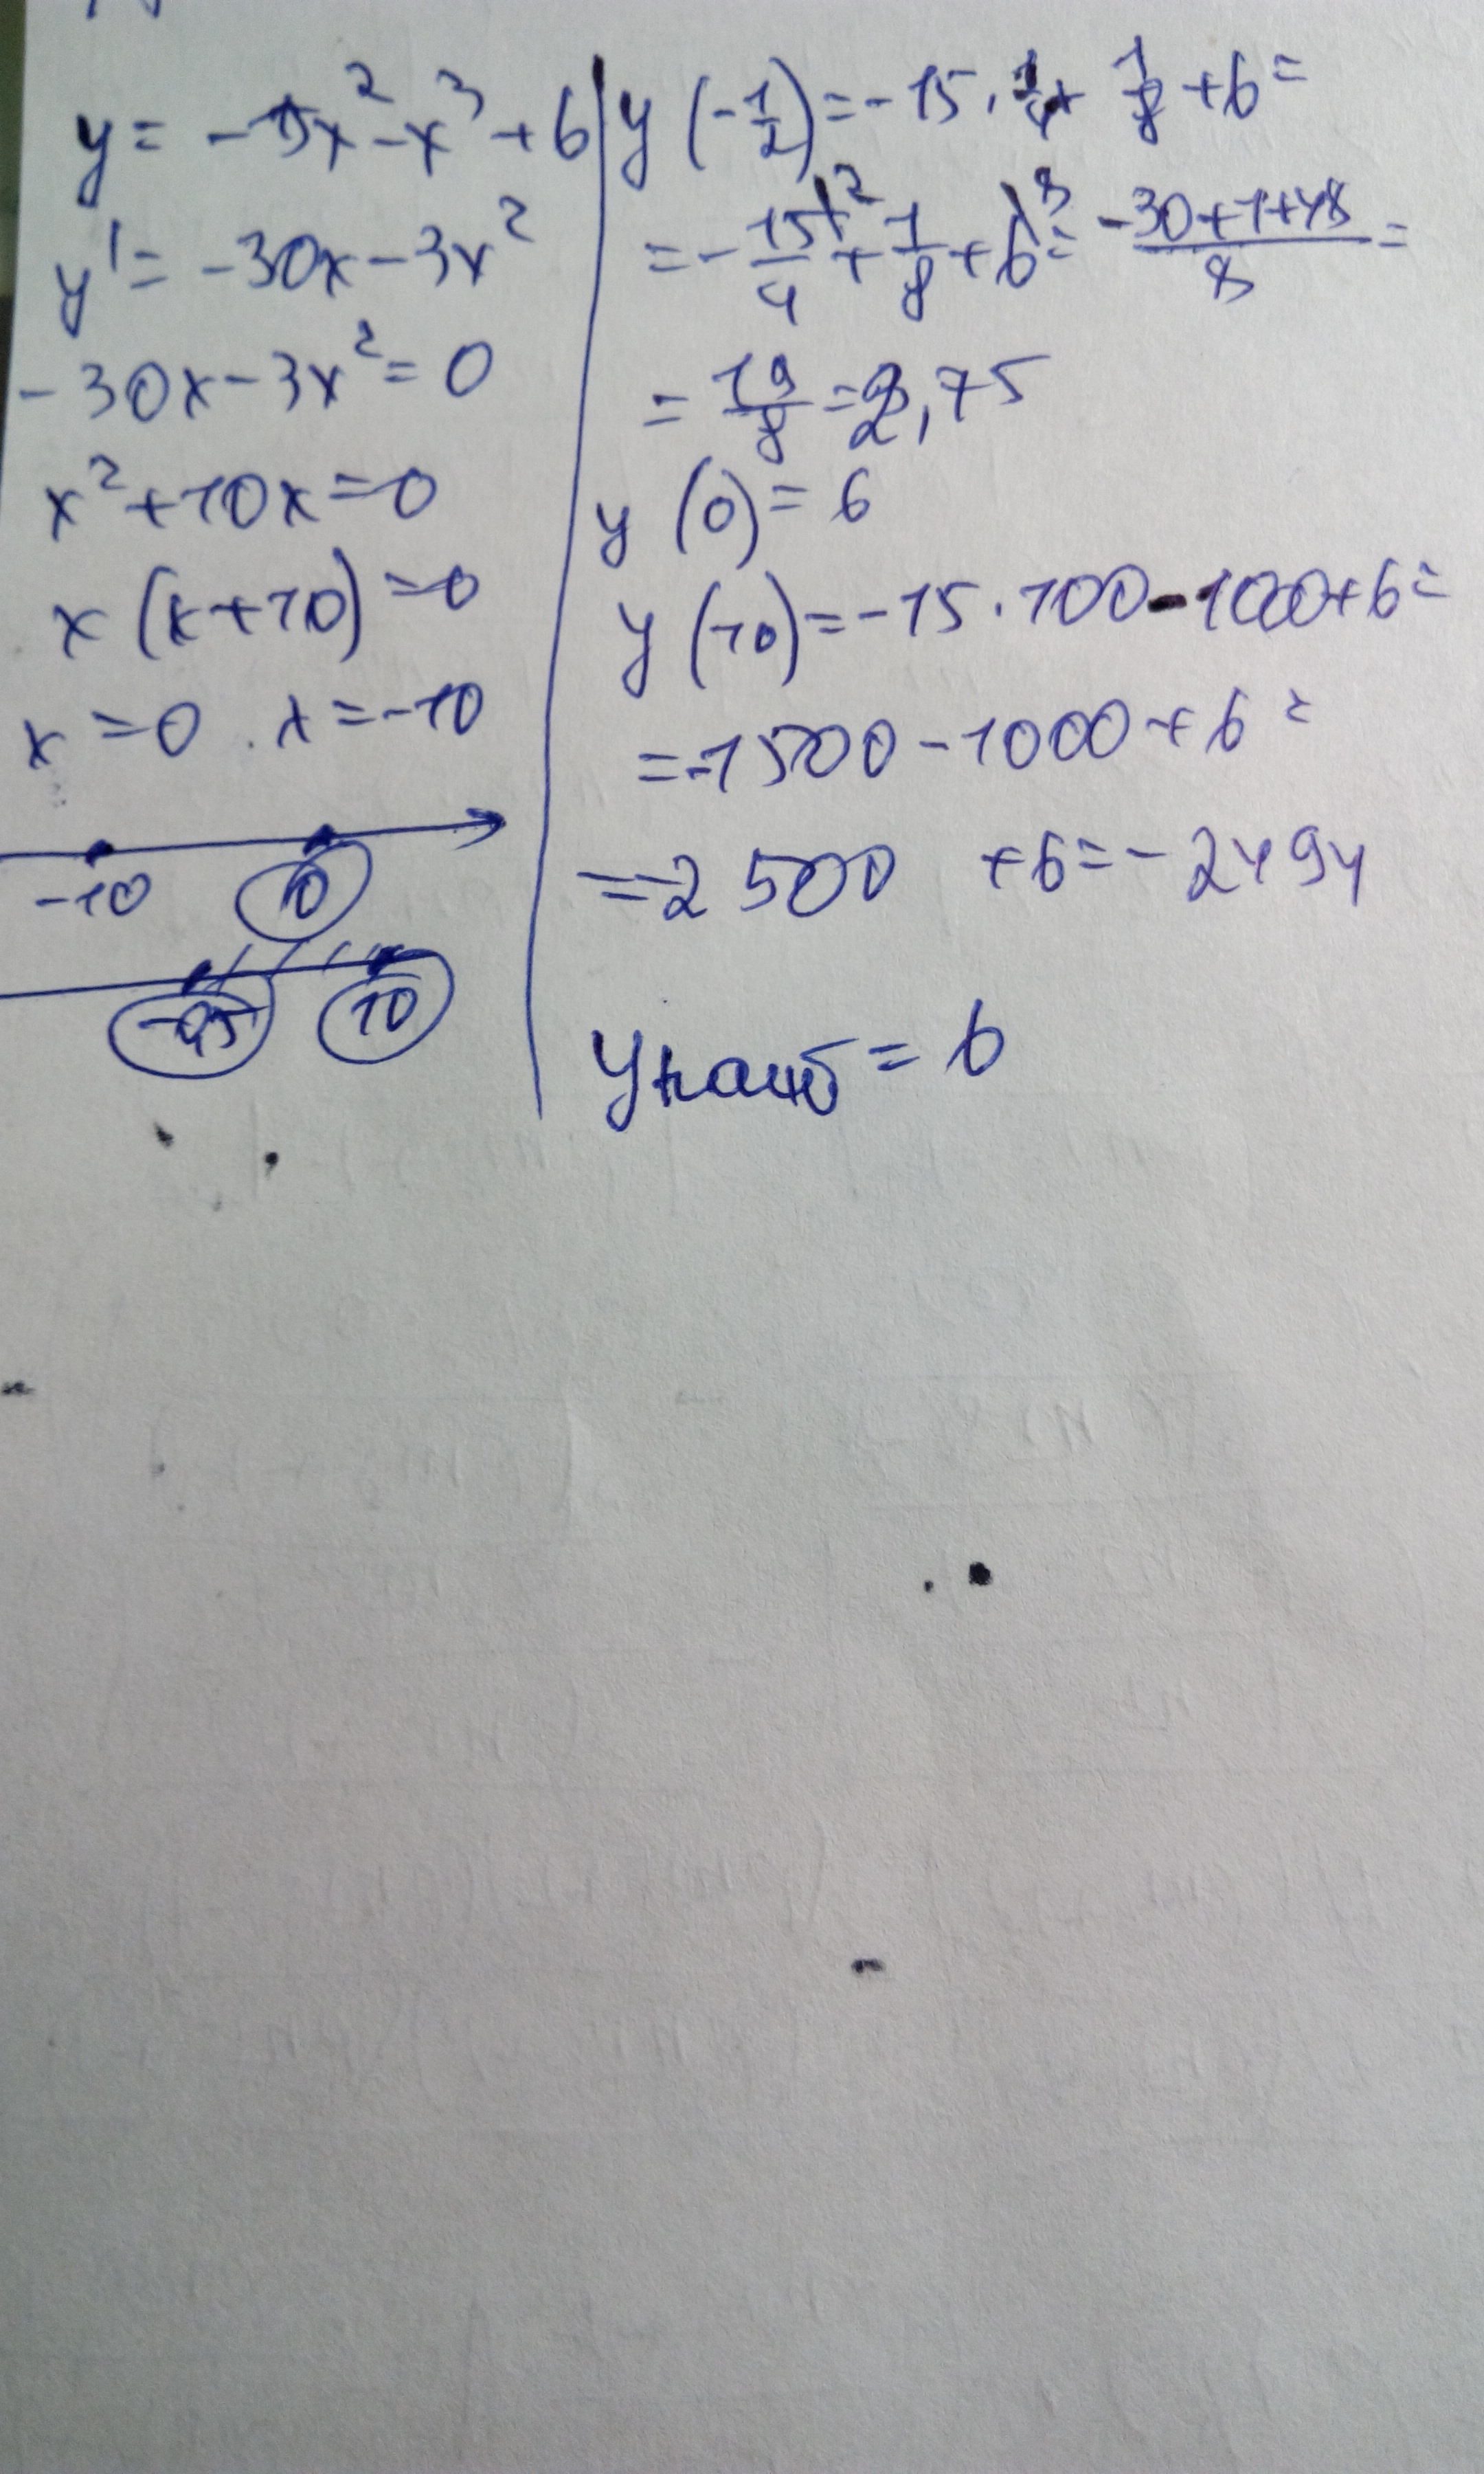 y = -15x² - x³ + 6
y' = -30x - 3x²
-30x - 3x² = 0
x² + 10x = 0
x (x + 10) = 0
x = 0 . x = -10
-10 0
-0,5 10
y (-1/2) = -15 · 1/4 + 1/8 + 6 =
= -15\²/4 + 1/8 + 6\⁸ = -30+1+48/8 =
= 19/8 = 2,75
y (0) = 6
y (10) = -15 · 100 - 1000 + 6 =
= -1500 - 1000 + 6 =
= -2500 + 6 = -2494
y наиб = 6